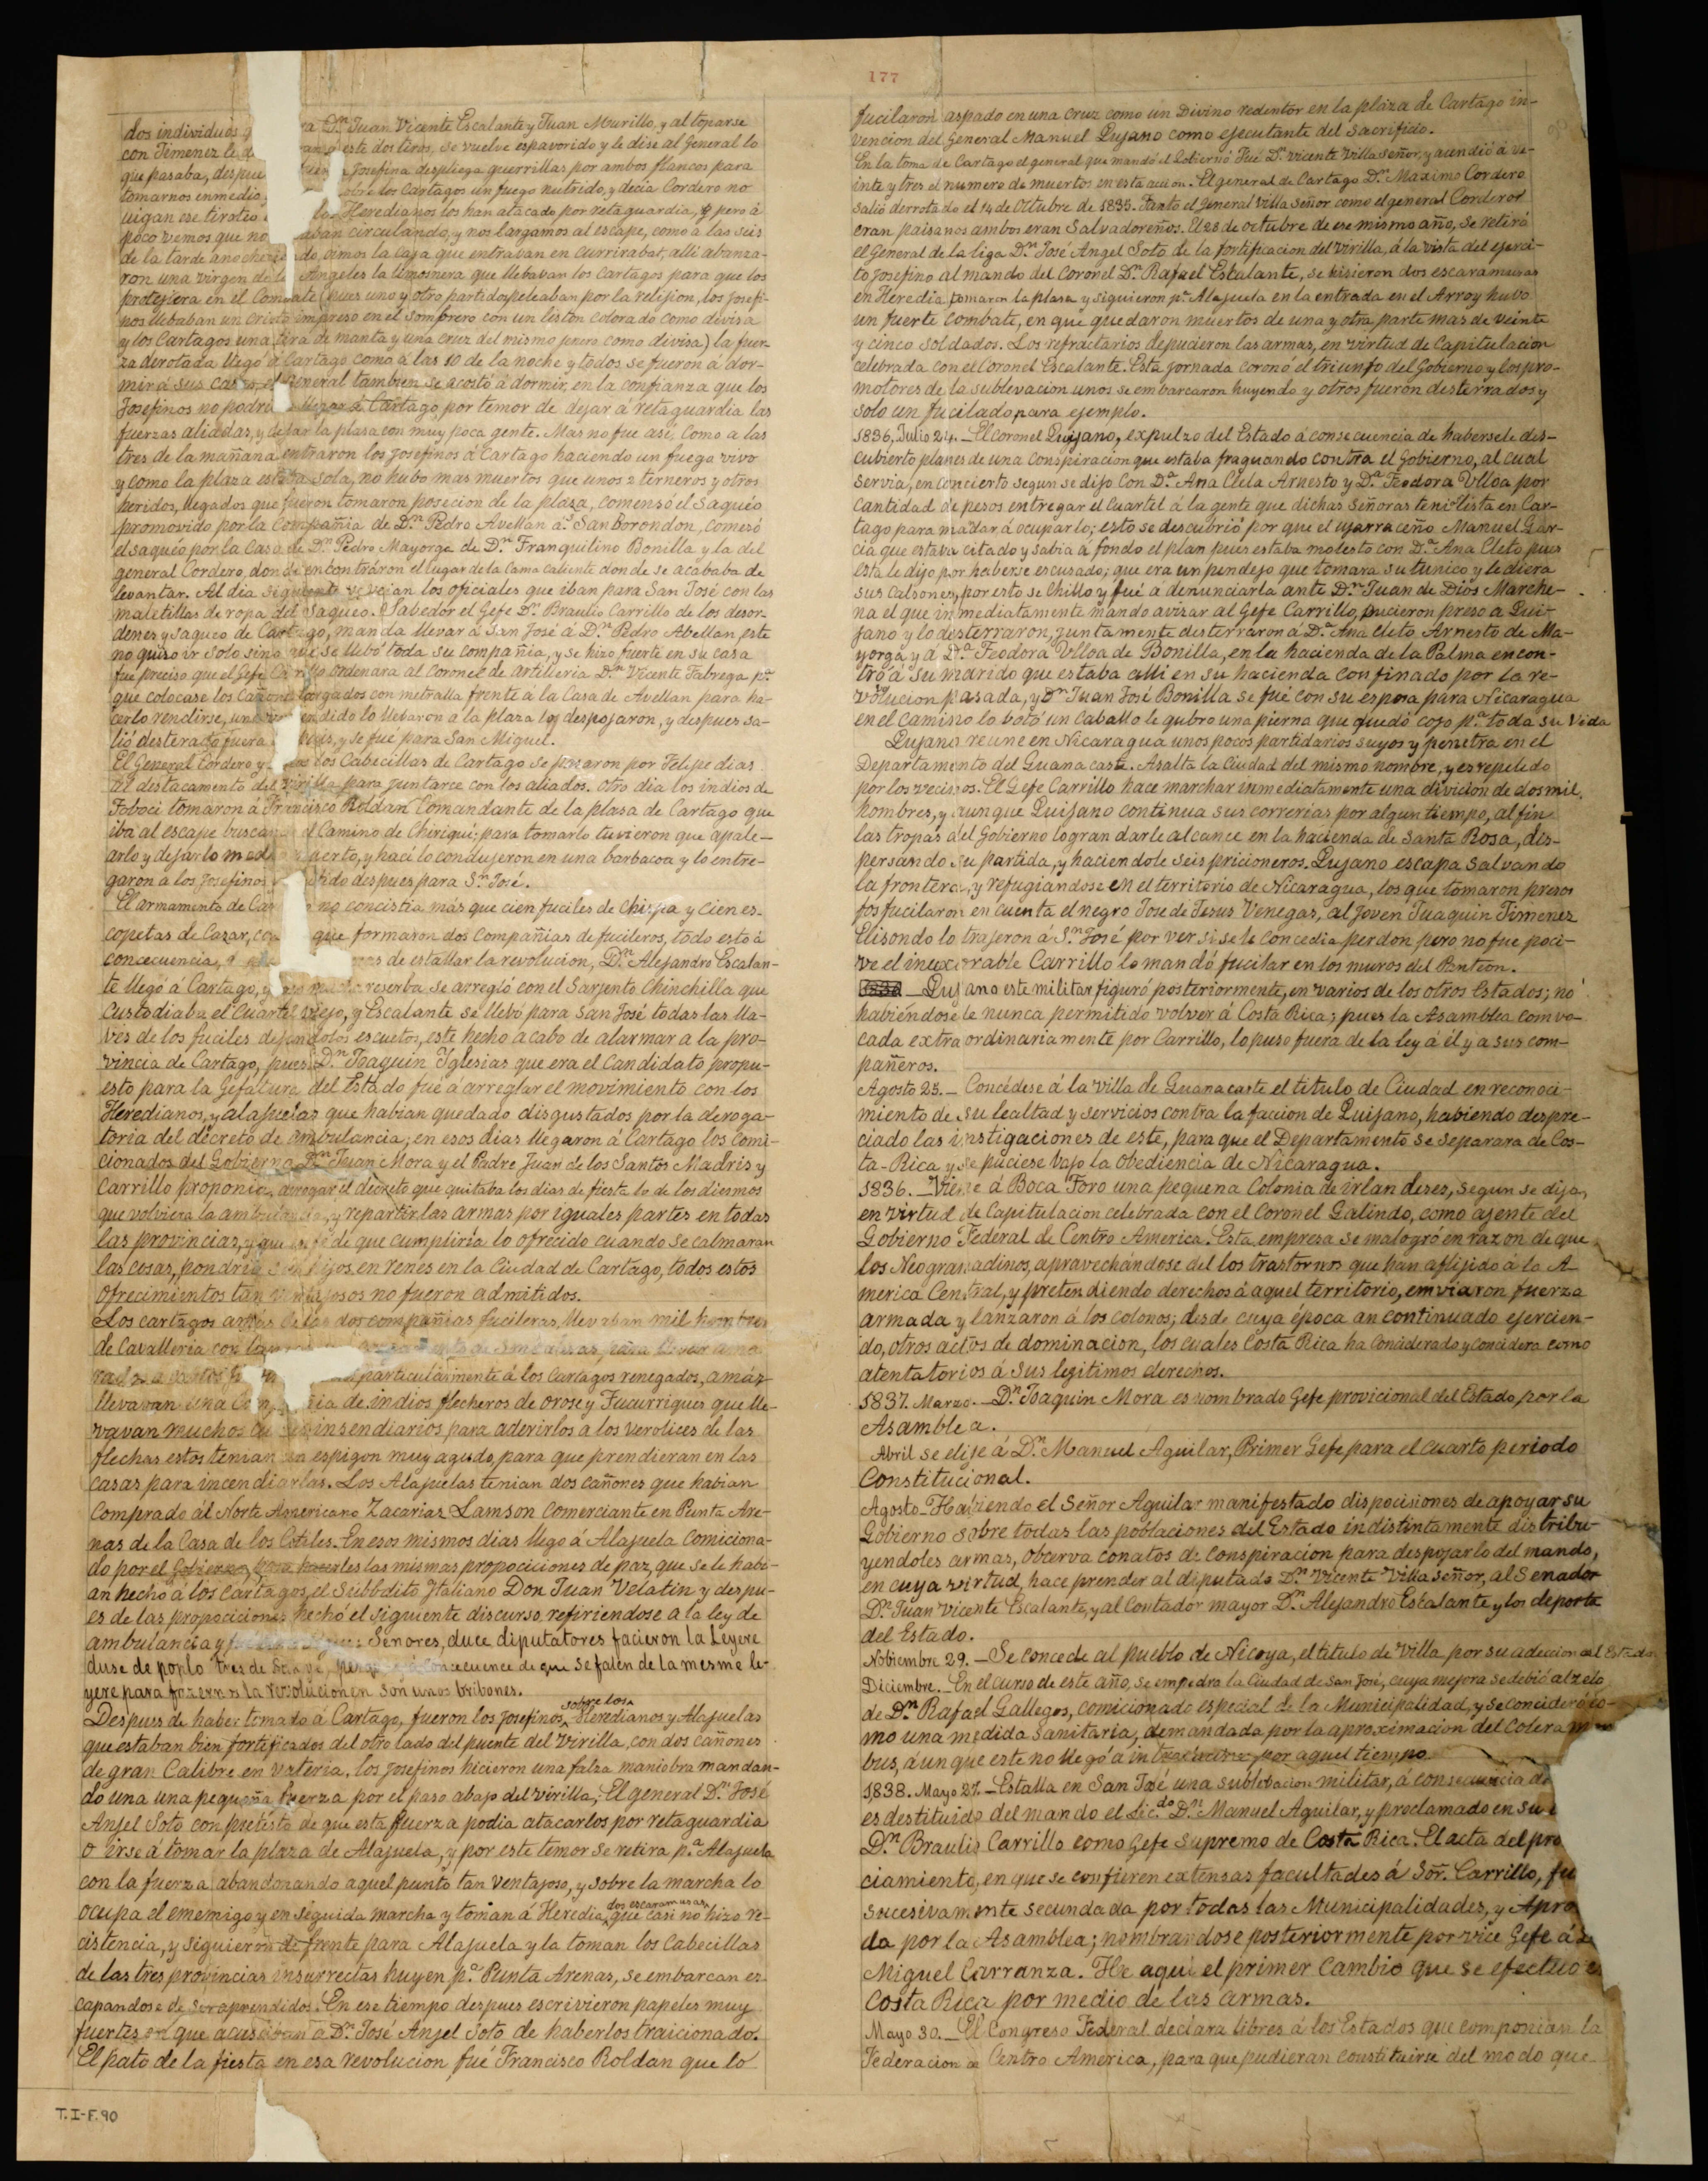 177
dos individuos Dn Juan Vicente Escalante y Juan Murillo y al toparse
con Jimenez le este dos tiros, se vuelve espavorido y le dise al General lo
que pasaba, despue Josefina despliega guerrillas por ambos flancos para
tomarnos enmedio, sobre los Cartagos un fuego nutrido, y decia Cordero no
uigan ese tiroteo los Heredianos los han atacado por retaguardia, pero á
poco vemos que no circulando, y nos largamos al escape, como á las seis
de la tarde oimos la caja que entravan en Currirabat, alli abanza-
ron una virgen de los Angeles la limosnera que llebavan los Cartagos para que los
protejiera en el Combate (pues uno y otro partido peleaban por la relijion, los josefi-
nos llebaban un cristo impreso en el sombrero con un liston colorado como divisa
y los Cartagos una tira de manta y una cruz del mismo como divisa) la fuer-
za derotada llegó á Cartago como á las 10 de la noche y todos se fueron á dor-
mir á sus casas, el General tambien se acostó á dormir, en la confianza que los
Josefinos no podri llegar á Cartago por temor de dejar á retaguardia las
fuerzas aliadas, y dejar la plasa con muy poca gente. Mas no fue asi, como a las
tres de la mañana entraron los josefinos á Cartago haciendo un fuego vivo
y como la plaza estaba sola, no hubo mas muertos que unos 2 terneros y otros
heridos, llegados que fueron tomaron posecion de la plaza, comensó el saqueo
promovido por la Compañia de Dn Pedro Avellan as Sanborondon, comesó
el saquéo por la casa de Dn Pedro Mayorga de Dn Franquilino Bonilla y la del
general Cordero, donde encontraron el lugar de la cama caliente donde se acababa de
levantar. Al dia siguiente veian los oficiales que iban para San José con las
maletillas de ropa del saqueo. Sabedor el Gefe Dn Braulio Carrillo de los desor-
denes y saqueo de Cartago, manda llevar á San José á Dn Pedro Abellan, este
no quiso ir solo sino que se llebó toda su compañia, y se hizo fuerte en su casa
fue preciso que el Gefe Carrillo ordenara al Coronel de artilleria Dn Vicente Fabrega pa
que colocase los Cañones cargados con metralla frente á la Casa de Avellan para ha-
cerlo rendirse, una vez rendido lo llebaron á la plaza los despojaron, y despues sa-
lió desterado fuera y se fué para San Miguel.
El General Cordero y los Cabecillas de Cartago se pasaron por Felipe dias
al destacamento del Virilla para juntarce con los aliados. Otro dia los indios de
Toboci tomaron á Francisco Roldan Comandante de la plasa de Cartago que
iba al escape buscando el Camino de Chiriqui; para tomarlo tuvieron que apale-
arlo y dejarlo medio muerto, y haci lo condujeron en una barbacoa y lo entre-
garon a los Josefinos despues para Sn José.
El armamento de Car no concistia más que cien fuciles de chispa y cien es-
copetas de Cazar, con que formaron dos Compañias de fucileros, todo esto á
concecuencia, de estallar la revolucion, Dn Alejandro Escalan-
te llegó á Cartago, y reserba se arregló con el Sarjento Chinchilla que
custodiaba el Cuartel viejo, y Escalante se llebó para San José todas las lla-
ves de los fuciles dejandolos escuetos, este hecho acabo de alarmar a la pro-
vincia de Cartago, pues Dn Joaquin Yglesias que era el candidato propu-
esto para la Gefatura del Estado fué á arreglar el movimiento con los
Heredianos, y alajuelas que habian quedado disgustados por la deroga-
toria del decreto de ambulancia, en esos dias llegaron á Cartago los comi-
cionados del Gobierno Dn Juan Mora y el Padre Juan de los Santos Madris y
Carrillo proponia, derogar el decreto que quitaba los dias de fiesta lo de los diesmos
que volviera la ambulancia, y repartir las armas por iguales partes en todas
las provincias, y que en fé de que cumpliria lo ofrecido cuando se calmaran
las cosas, pondria sus hijos en renes en la Ciudad de Cartago, todos estos
ofrecimientos tan ventajosos no fueron admitidos.
Los cartagos de las dos compañias fucileras, llevaban mil hombres
de Cavalleria con
particularmente á los Cartagos renegados, amás
llevavan una Compañia de indios flecheros de Orosi y Tucurrigues que lle-
vavan muchos insendiarios, para aderirlos a los verolices de las
flechas estos tenian un espigon muy agudo, para que prendieran en las
casas para incendiarlas. Los Alajuelas tenian dos cañones que habian
comprado al Norte Americano Zacarias Lamson comerciante en Punta Are-
nas de la Casa de los Cotiles. En esos mismos dias llegó á Alajuela comiciona-
do por el Gobierno, para hacerles las mismas propociciones de paz, que se le habi-
an hecho á los Cartagos, el Subbdito Ytaliano Don Juan Velatin y despu-
es de las propociciones hechó el siguiente discurso, refiriendose a la ley de
ambulancia y Senores, duce diputatores facieron la Leyere
duse de poplo tres de concecuence de que se falen de la mesme le-
yere para fazernos la revolucionen son unos bribones.
Despues de haber tomado á Cartago, fueron los josefinos sobre los Heredianos y Alajuelas
que estaban bien fortificados del otro lado del puente del Virilla, con dos cañones
de gran Calibre en vateria. los josefinos hicieron una falza maniobra mandan-
do una una pequeña fuerza por el paso abajo del virilla; El general Dn José
Anjel Soto con pretesto de que esta fuerza podia atacarlos por retaguardia
o irse á tomar la plaza de Alajuela, y por este temor se retira pa Alajuela
con la fuerza abandonando aquel punto tan ventajoso, y sobre la marcha lo
ocupa el ememigo y en seguida marcha y toman á Heredia, dos escaramusas que casi no hizo re-
cistencia, y siguieron de frente para Alajuela y la toman los Cabecillas
de las tres provincias insurrectas huyen pa Punta Arenas, se embarcan es-
capandose de ser aprendidos. En ese tiempo despues escrivieron papeles muy
fuertes en que acusaban á Dn José Anjel Soto de haberlos traicionado.
El pato de la fiesta en esa revolucion fué Francisco Roldan que lo
T.I-F.90
fucilaron aspado en una cruz como un Divino redentor en la plaza de Cartago in-
vencion del General Manuel Quijano como ejecutante del sacrificio.
En la toma de Cartago el general que mandó el Gobierno Fué Dn Vicente Villa señor, y acendió á ve-
inte y tres el numero de muertos en esta accion. El general de Cartago Dn Maximo Cordero
salió derrotado el 14 de Octubre de 1835. Tanto el General Villa señor como el general Cordero
eran paisanos ambos eran Salvadoreños. El 28 de octubre de ese mismo año, se retiró
el General de la liga Dn José Angel Soto de la fortificacion del Virilla, á la vista del ejerci-
to josefino al mando del Coronel Dn Rafael Escalante, se hisieron dos escaramusas
en Heredia tomaron la plasa y siguieron pa Alajuela en la entrada en el Arroy hubo
un fuerte combate, en que quedaron muertos de una y otra parte mas de veinte
y cinco soldados. Los refractarios depucieron las armas, en virtud de Capitulacion
celebrada con el Coronel Escalante. Esta jornada coronó el triunfo del Gobierno y los pro-
motores de la sublevacion unos se embarcaron huyendo y otros fueron desterrados y
solo un fucilado para ejemplo.
1836, Julio 24. El coronel Quijano, expulzo del Estado á consecuencia de habersele des-
cubierto planes de una conspiracion que estaba fraguando contra el Gobierno, al cual
servia, en concierto segun se dijo con Da Ana Cleta Arnesto y Da Feodora Ulloa por
cantidad de pesos entregar el cuartel á la gente que dichas señoras teni lista en Car-
tago para madar á ocuparlo; esto se descubrió por que el ujarraceño Manuel Gar-
cia que estava citado y sabia á fondo el plan pues estaba molesto con Da Ana Cleto, pues
esta le dijo por haberse escusado; que era un pendejo que tomara su tunico y le diera
sus calsones, por esto se chillo y fué á denunciarla ante Dn Juan de Dios Marche-
na el que inmediatamente mando avizar al Gefe Carrillo, pucieron preso a Qui-
jano y lo desterraron, juntamente desterraron á Da Ana Cleto Arnesto de Ma-
yorga y á Da Feodora Ulloa de Bonilla, en la hacienda de la Palma encon-
tró á su marido que estaba alli en su hacienda confinado por la re-
volucion pasada, y Dn Juan José Bonilla se fué con su esposa para Nicaragua
en el camino lo botó un caballo le qubro una pierna que quedó cojo pa toda su vida
Quijano reune en Nicaragua unos pocos partidarios suyos y penetra en el
Departamento del Guanacaste. Asalta la Ciudad del mismo nombre, y es repeledo
por los vecinos. El Gefe Carrillo hace marchar inmediatamente una divicion de dos mil,
hombres, y aunque Quijano continua sus correrias por algun tiempo, al fin
las tropas del Gobierno logran darle alcance en la hacienda de Santa Rosa, dis-
persando su partida, y haciendole seis pricioneros. Quijano escapa salvando
la frontera, y refugiandose en el territorio de Nicaragua, los que tomaron presos
los fucilaron en cuenta el negro Jose de Jesus Venegas, al joven Juaquin Jimenez
Elisondo lo trajeron á Sn José por ver si se le concedia perdon pero no fue poci-
ve el inexorable Carrillo lo mandó fucilar en los muros del Panteon.
Quijano este militar figuró posteriormente, en varios de los otros Estados; no
habiendosele nunca permitido volver á Costa Rica; pues la Asamblea convo-
cada extraordinariamente por Carrillo, lo puso fuera de la ley á él y a sus com-
pañeros.
Agosto 25. Concédese á la Villa de Guanacaste el titulo de Ciudad en reconoci-
miento de su lealtad y servicios contra la facion de Quijano, habiendo despre-
ciado las instigaciones de este, para que el Departamento se separara de Cos-
ta-Rica y se puciese bajo la obediencia de Nicaragua.
1836. Viene á Boca Toro una pequena Colonia de irlandeses, segun se dijo,
en virtud de Capitulacion celebrada con el Coronel Galindo, como ajente del
Gobierno Federal de Centro America. Esta empresa se malogró en razon de que
los Neogranadinos, aprovechándose del los trastornos que han aflijido á la A-
merica Central, y pretendiendo derechos á aquel territorio, enviaron fuerza
armada y lanzaron á los colonos; desde cuya época an continuado ejercien-
do, otros actos de dominacion, los cuales Costa Rica ha conciderado y concidera como
atentatorios á sus legitimos derechos.
1837. Marzo. Dn Joaquin Mora es nombrado Gefe provicional del Estado, por la
Asamblea.
Abril se elije á Dn Manuel Aguilar, Primer Gefe para el cuarto periodo
Constitucional.
Agosto-Habiendo el Señor Aguilar manifestado dispocisiones de apoyar su
Gobierno sobre todas las poblaciones del Estado indistintamente distribu-
yendoles armas, observa conatos de conspiracion para despojarlo del mando,
en cuya virtud, hace prender al diputado Dn Vicente Villa señor, al Senador
Dn Juan Vicente Escalante, y al Contador mayor Dn Alejandro Escalante y los deporta
del Estado.
Nobiembre 29. Se concede al pueblo de Nicoya, el titulo de Villa por su adeccion al Estado
Diciembre. En el curso de este año, se empedra la Ciudad de San José, cuya mejora se debió al zelo
de Dn Rafael Gallegos, comicionado especial de la Municipalidad, y se concideró co-
mo una medida sanitaria, demandada por la aproximacion del Colera mor-
bus, áun que este no llegó á introducirse por aquel tiempo.
1838. Mayo 27. Estalla en San José una sublebacion militar, á consecuencia de
es destituido del mando el Licdo Dn Manuel Aguilar, y proclamado en su
Dn Braulio Carrillo como Gefe supremo de Costa Rica. El acta del pro
ciamiento, en que se confieren extensas facultades á Sor. Carrillo, fu
sucesivamente secundada por todas las Municipalidades, y Apro
da por la Asamblea; nombrandose posteriormente por vice Gefe á
Miguel Carranza. He aqui el primer cambio que se efectuo
Costa Rica por medio de las armas.
Mayo 30. El Congreso Federal declara libres á los Estados que componian la
Federacion de Centro America, para que pudieran constituirse del modo que